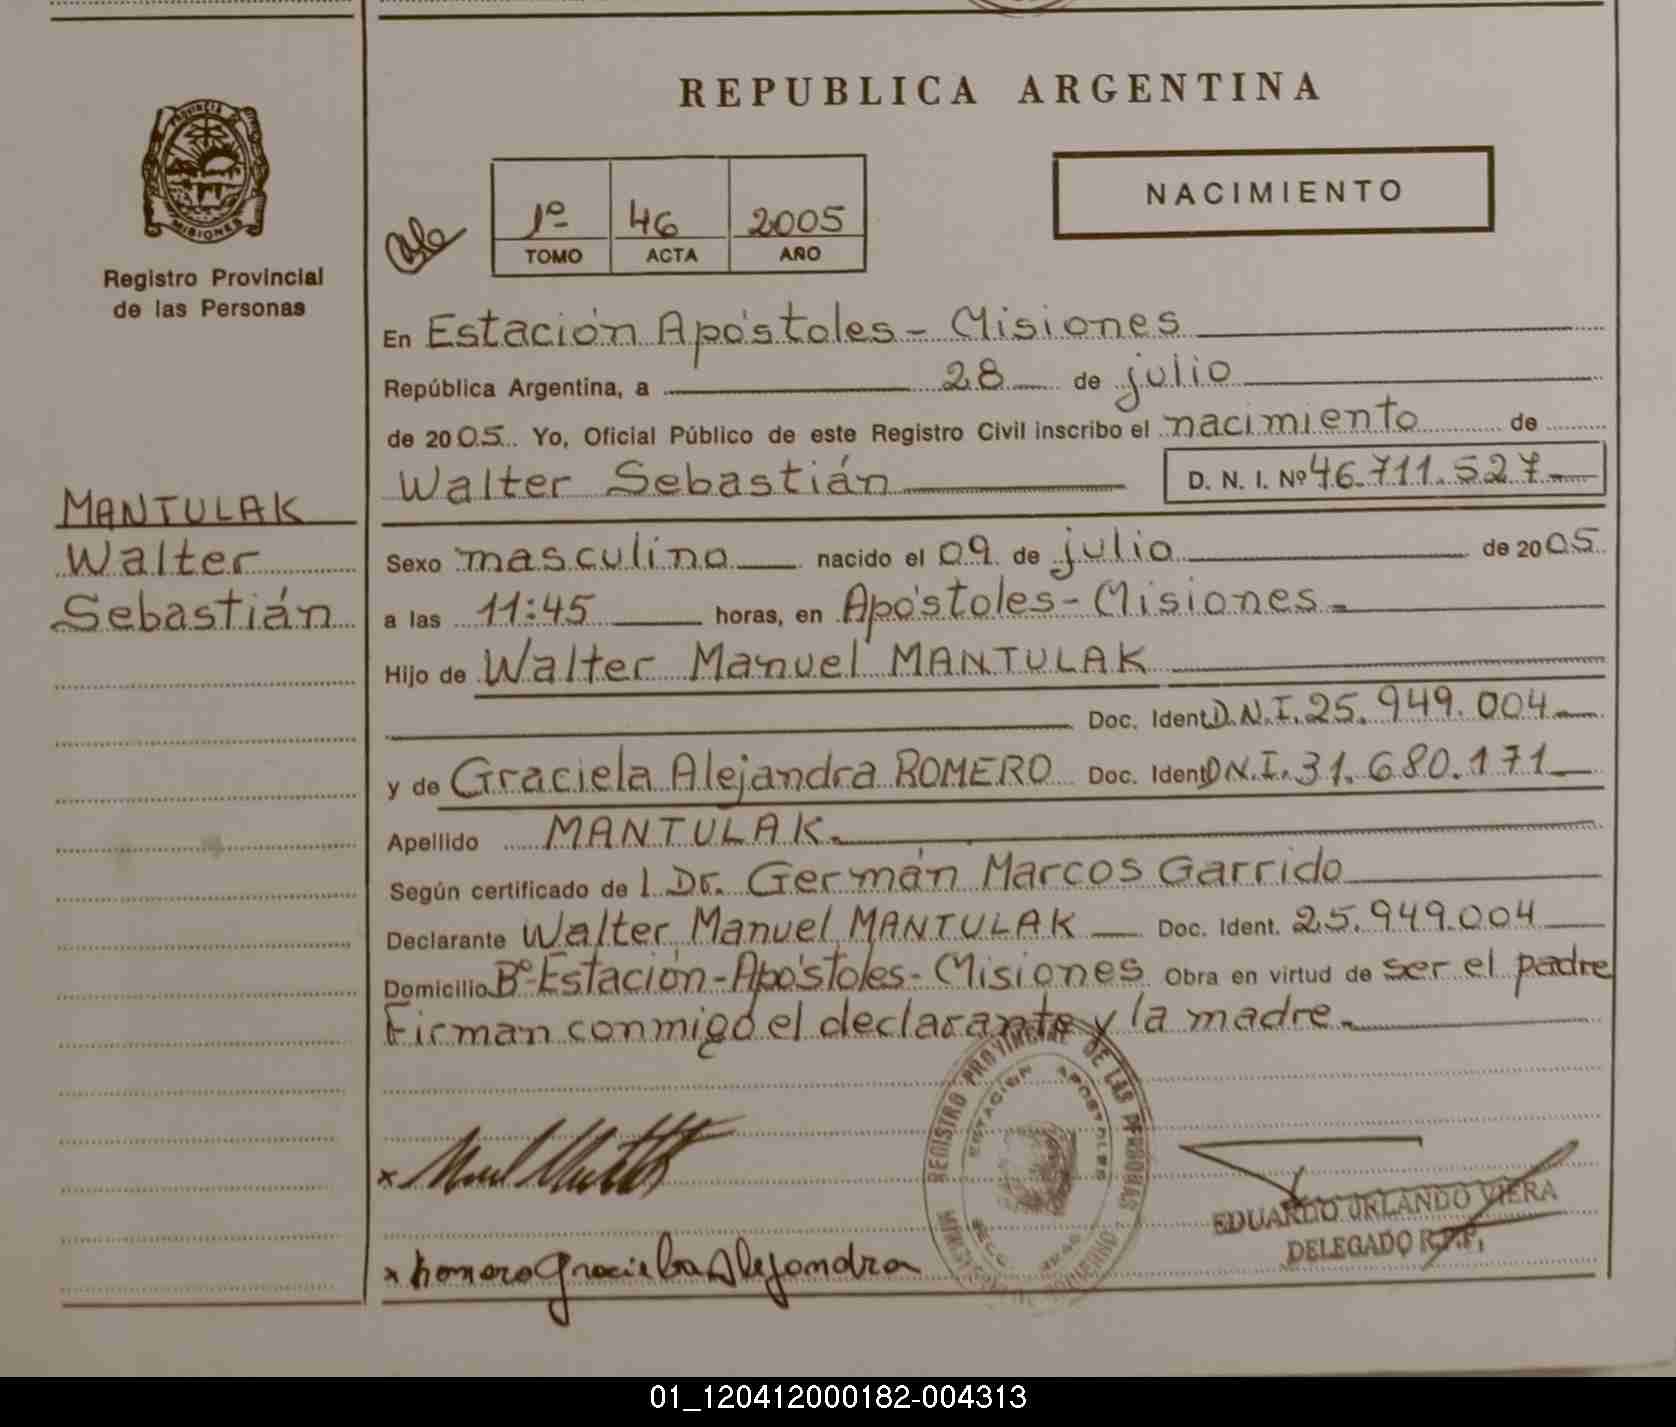 REPUBLICA ARGENTINA
PROVINCIA DE
MISIONES
Registro Provincial
de las Personas
NACIMIENTO
1º 46 2005
TOMO ACTA AÑO
En Estación Apóstoles - Misiones
República Argentina, a 28 de julio
de 2005. Yo, Oficial Público de este Registro Civil inscribo el nacimiento de
Walter Sebastián D. N. I. Nº 46.711.527
MANTULAK
Walter
Sebastián
Sexo masculino nacido el 09 de julio de 2005
a las 11:45 horas, en Apóstoles - Misiones.
Hijo de Walter Manuel MANTULAK
Doc. Ident. D.N.I. 25.949.004
y de Graciela Alejandra ROMERO Doc. Ident. D.N.I. 31.680.171
Apellido MANTULAK.
Según certificado de l Dr. Germán Marcos Garrido
Declarante Walter Manuel MANTULAK Doc. Ident. 25.949.004
Domicilio Bº Estación - Apóstoles - Misiones Obra en virtud de ser el padre
Firman conmigo el declarante y la madre.
REGISTRO PROVINCIAL DE LAS PERSONAS
ESTACION APOSTOLES
x Romero Graciela Alejandra
EDUARDO ORLANDO VIERA
DELEGADO R.P.P.
01_120412000182-004313